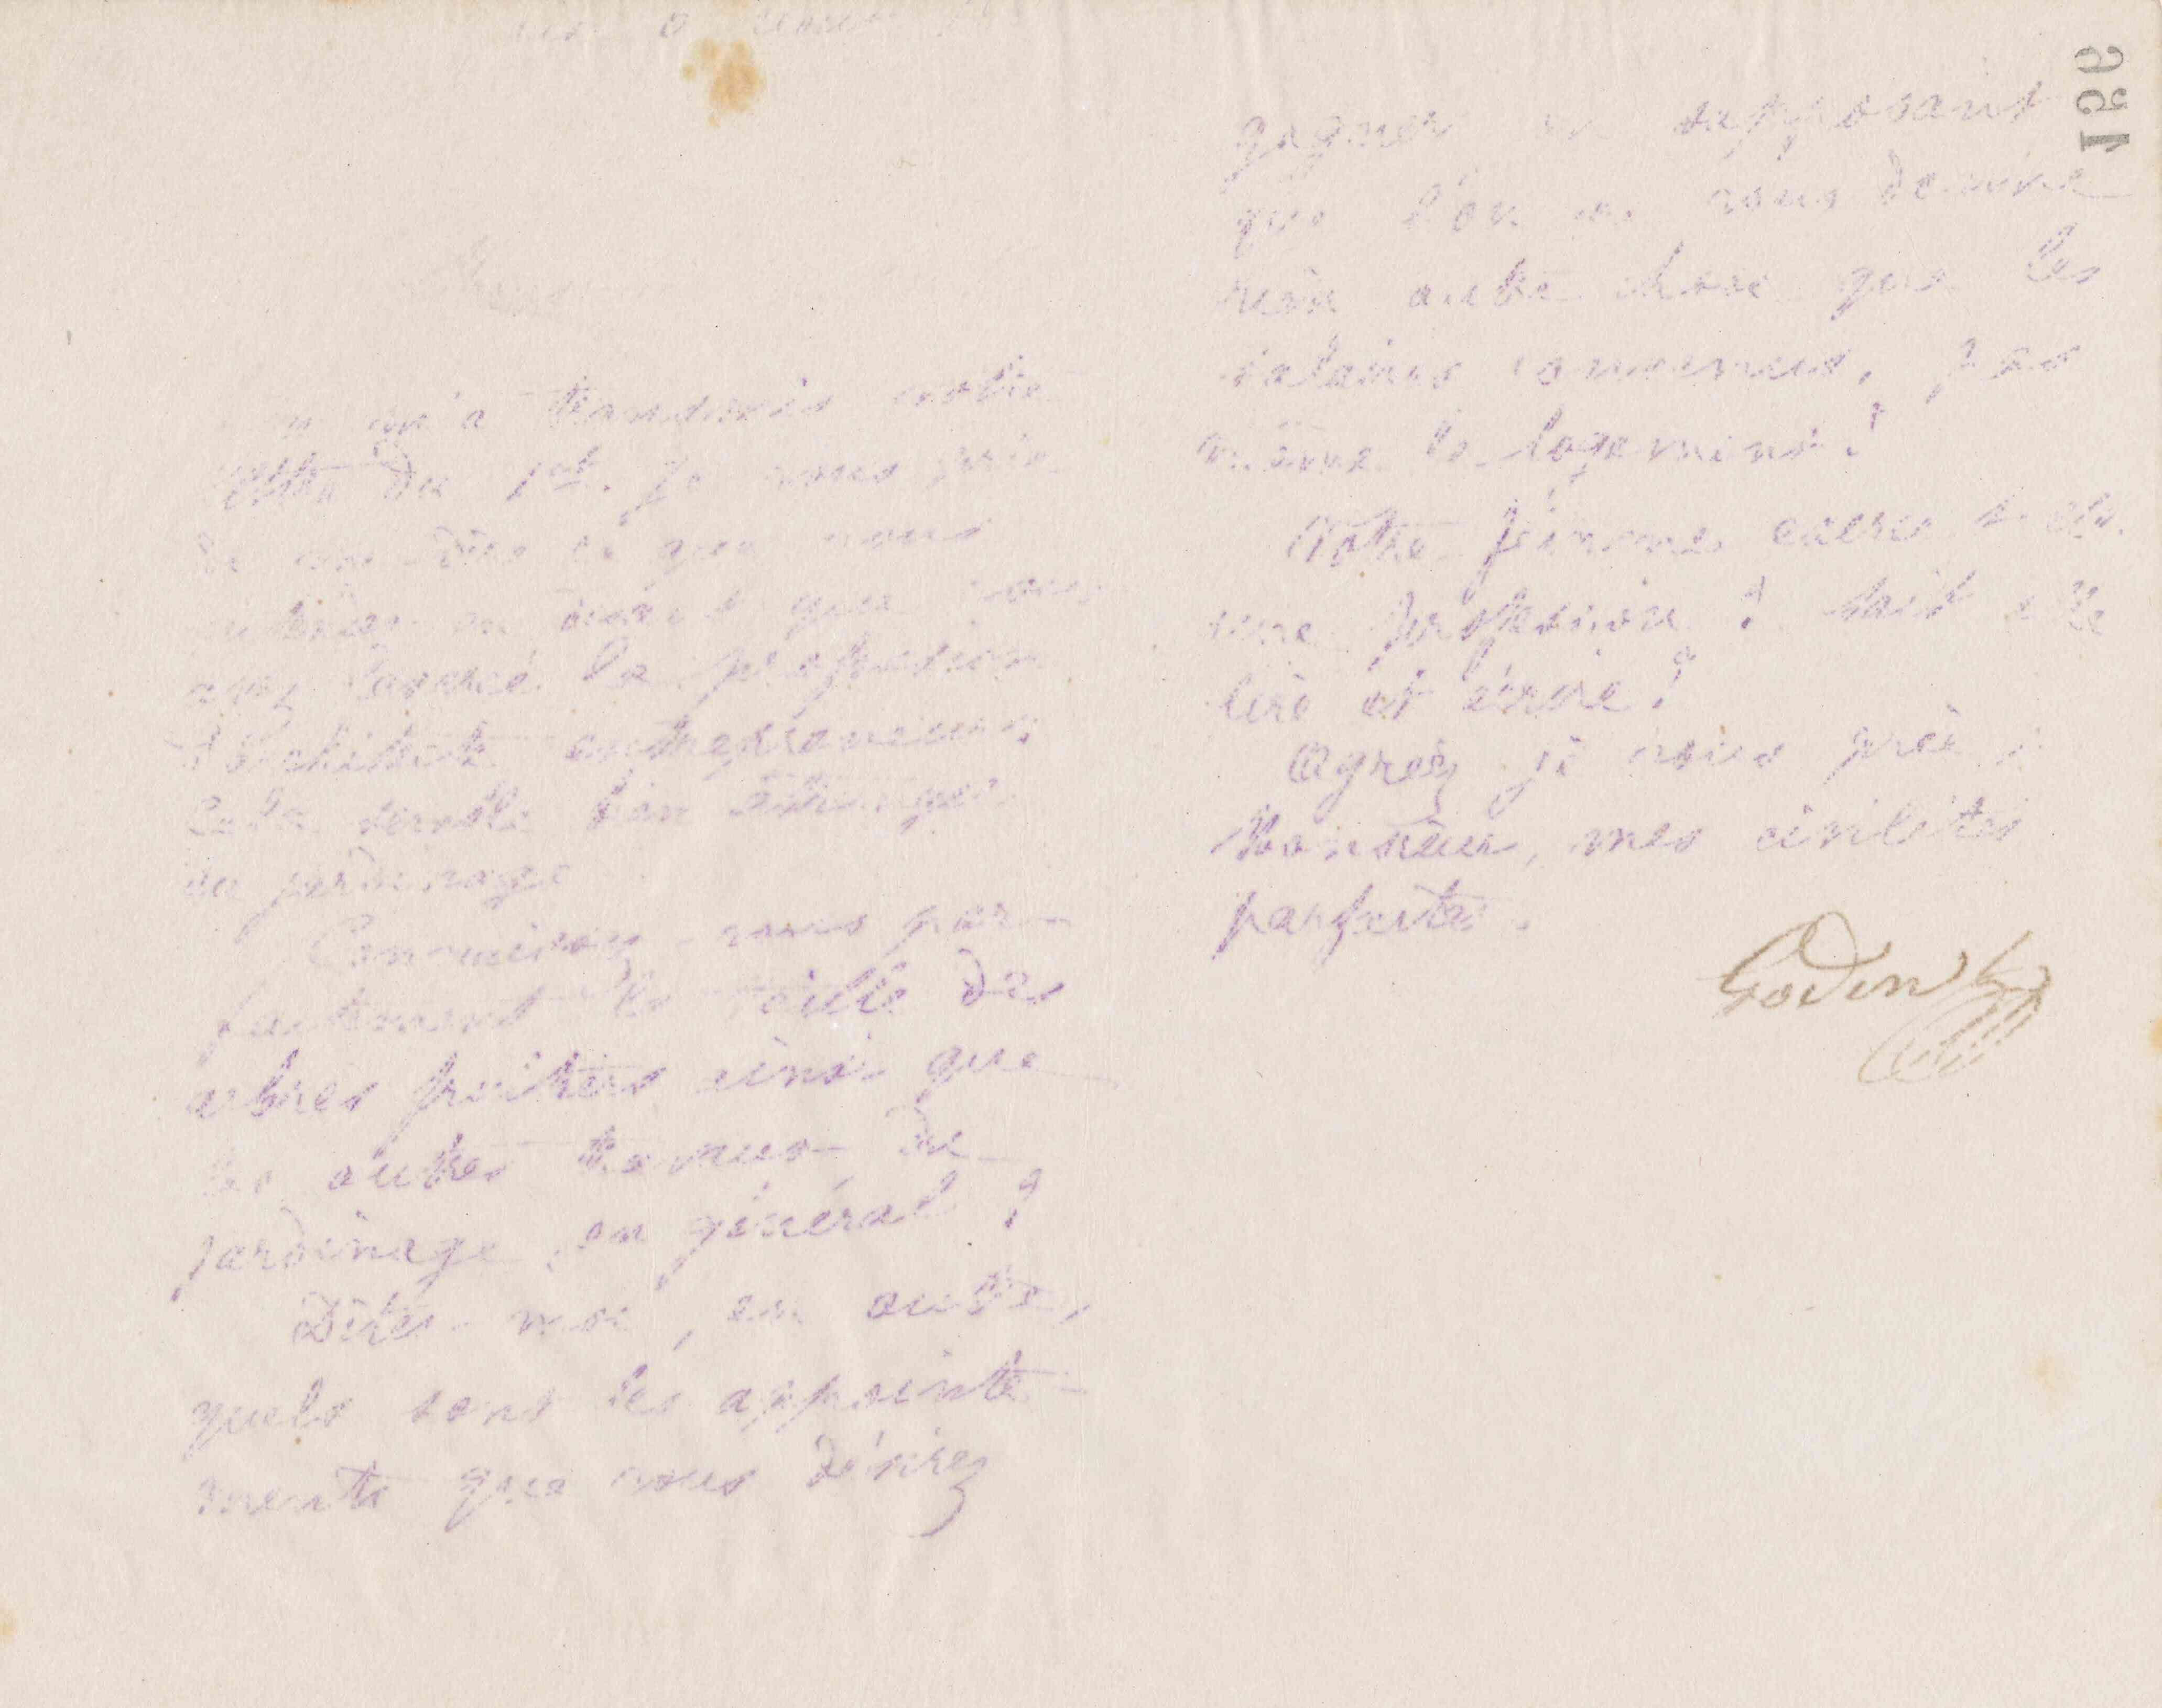 m'a transmis votre
lettre du 1er. Je vous prie
de me dire ce que vous
entendez en disant que vous
avez exercé la profession
d'architecte entrepreneur;
Cela semble bien étranger
au jardinage.
Connaissez-vous par-
faitement la taille des
arbres fruitiers ainsi que
les autres travaux de
jardinage, en général?
Dites-moi, en outre,
quels sont les appointe-
ments que vous désirez
gagner en supposant
que l'on ne vous donne
rien autre chose que les
salaires convenus, pas
même le logement?
Votre femme exerce-t-elle
une profession? Sait elle
lire et écrire?
Agréez je vous prie,
Monsieur, mes civilités
parfaites.
Godin
156